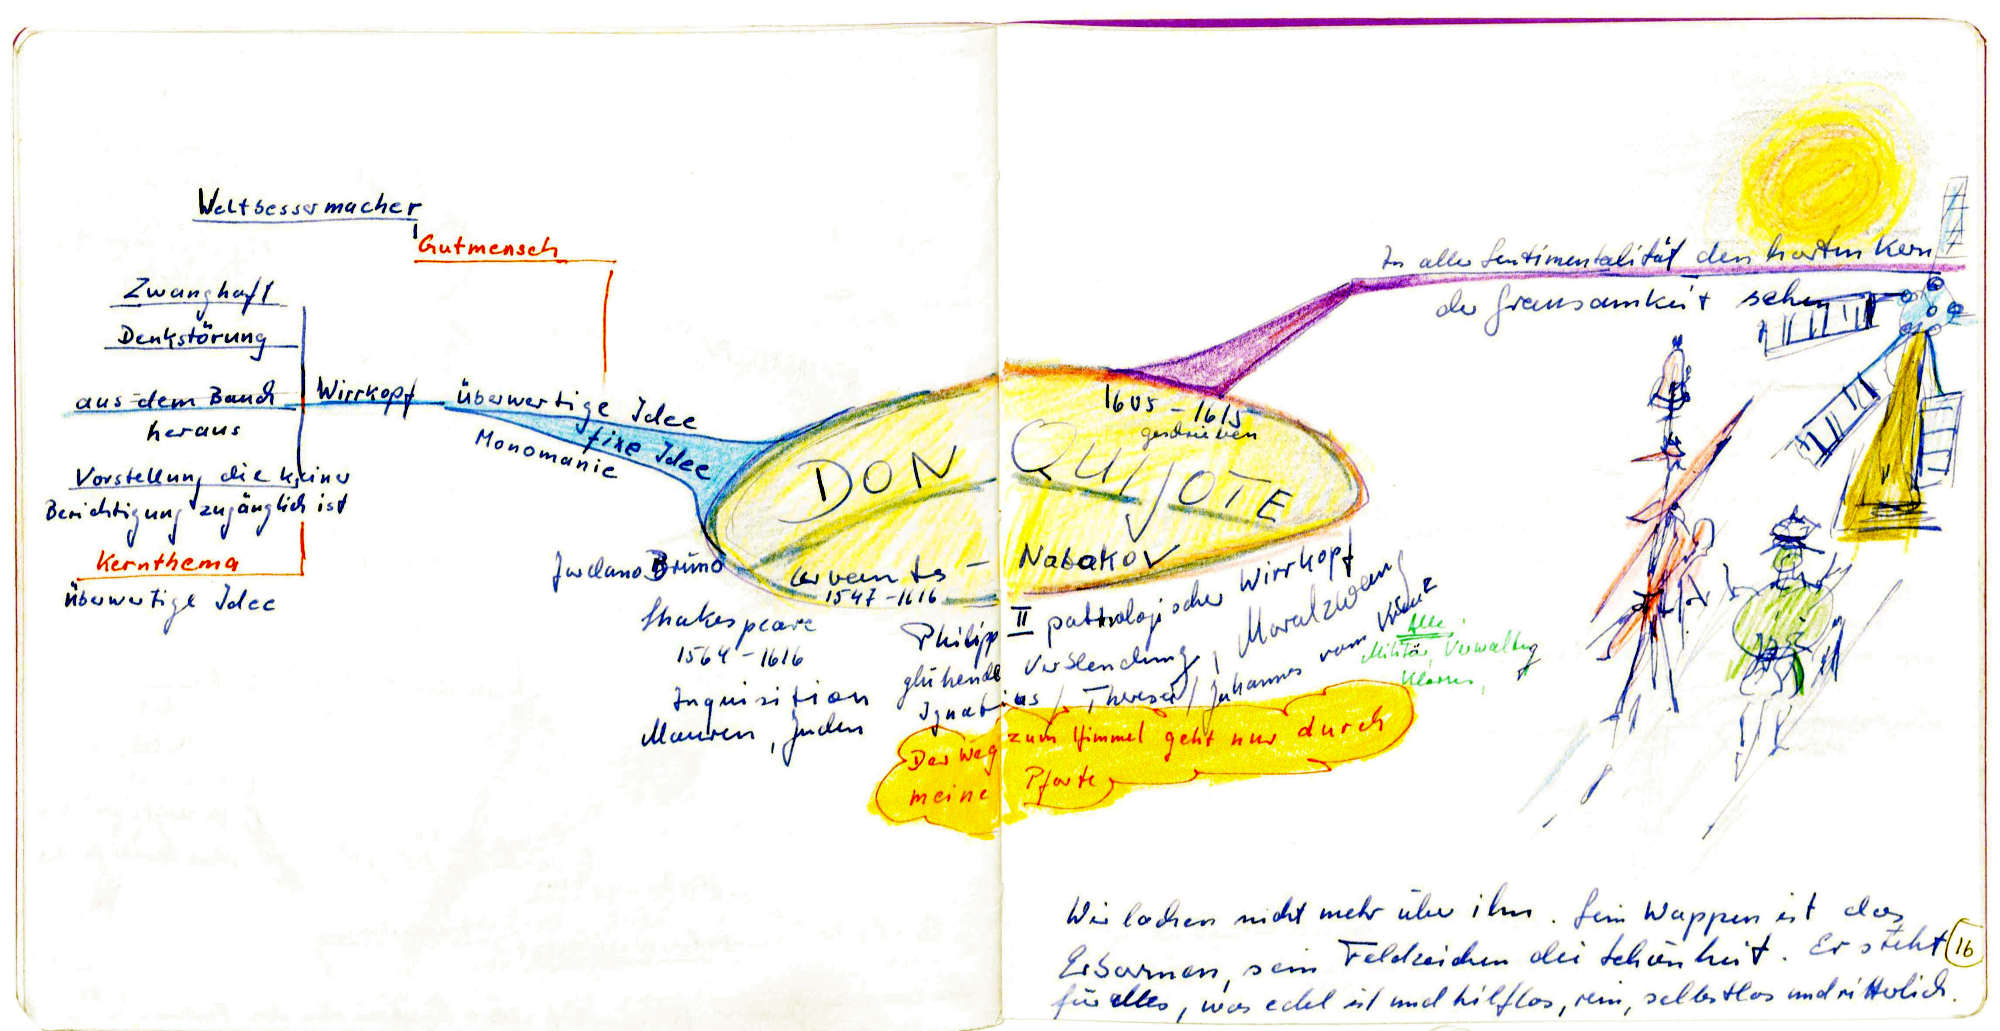 Weltbessermacher
Gutmensch
Zwanghaft
Denkstörung
aus dem Bauch
heraus
Vorstellung die keiner
Berichtigung zugänglich ist
Kernthema
überwertige Idee
Wirrkopf
überwertige Idee
fixe Idee
Monomanie
In aller Sentimentalität den harten Kern
der Grausamkeit sehen
1605 - 1615
geschrieben
DON QUIJOTE
Cervantes - Nabakov
1547-1616
Jordano Bruno
Shakespeare
1564-1616
Inquisition
Mauren, Juden
Philipp II pathologischer Wirrkopf
glühende Verblendung, Moralzwang
Ignatius / Therese / Johannes vom Kreuz
Alle
Militär, Verwaltung
Klerus,
Der Weg zum Himmel geht nur durch
meine Pforte
Wir lachen nicht mehr über ihn. Sein Wappen ist das
Erbarmen, sein Feldzeichen die Schönheit. Er steht
für alles, was edel ist und hilflos, rein, selbstlos und ritterlich.
16